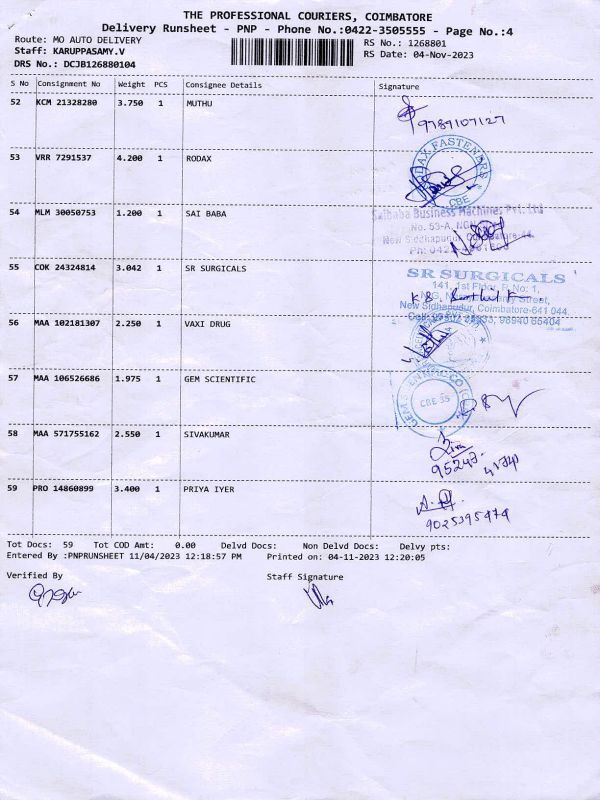 THE PROFESSIONAL COURIERS, COIMBATORE
Delivery Runsheet - PNP - Phone No.:0422-3505555 - Page No.:4
Route: MO AUTO DELIVERY
RS No.: 1268801
Staff: KARUPPASAMY.V
RS Date: 04-Nov-2023
DRS No.: DCJB126880104
S No Consignment No Weight PCS Consignee Details Signature
52 KCM 21328280 3.750 1 MUTHU
9789107127
53 VRR 7291537 4.200 1 RODAX
RODAX FASTENERS
CBE
54 MLM 30050753 1.200 1 SAI BABA
Saibaba Business Machines Pvt. Ltd
No. 53-A,
New Siddhapudur, Coimbatore-44.
55 COK 24324814 3.042 1 SR SURGICALS
SR SURGICALS
141, 1st Floor, R No: 1,
Street,
New Sidhapudur, Coimbatore-641 044.
56 MAA 102181307 2.250 1 VAXI DRUG
57 MAA 106526686 1.975 1 GEM SCIENTIFIC
CBE-35
58 MAA 571755162 2.550 1 SIVAKUMAR
59 PRO 14860899 3.400 1 PRIYA IYER
9025395474
Tot Docs: 59 Tot COD Amt: 0.00 Delvd Docs: Non Delvd Docs: Delvy pts:
Entered By :PNPRUNSHEET 11/04/2023 12:18:57 PM Printed on: 04-11-2023 12:20:05
Verified By Staff Signature